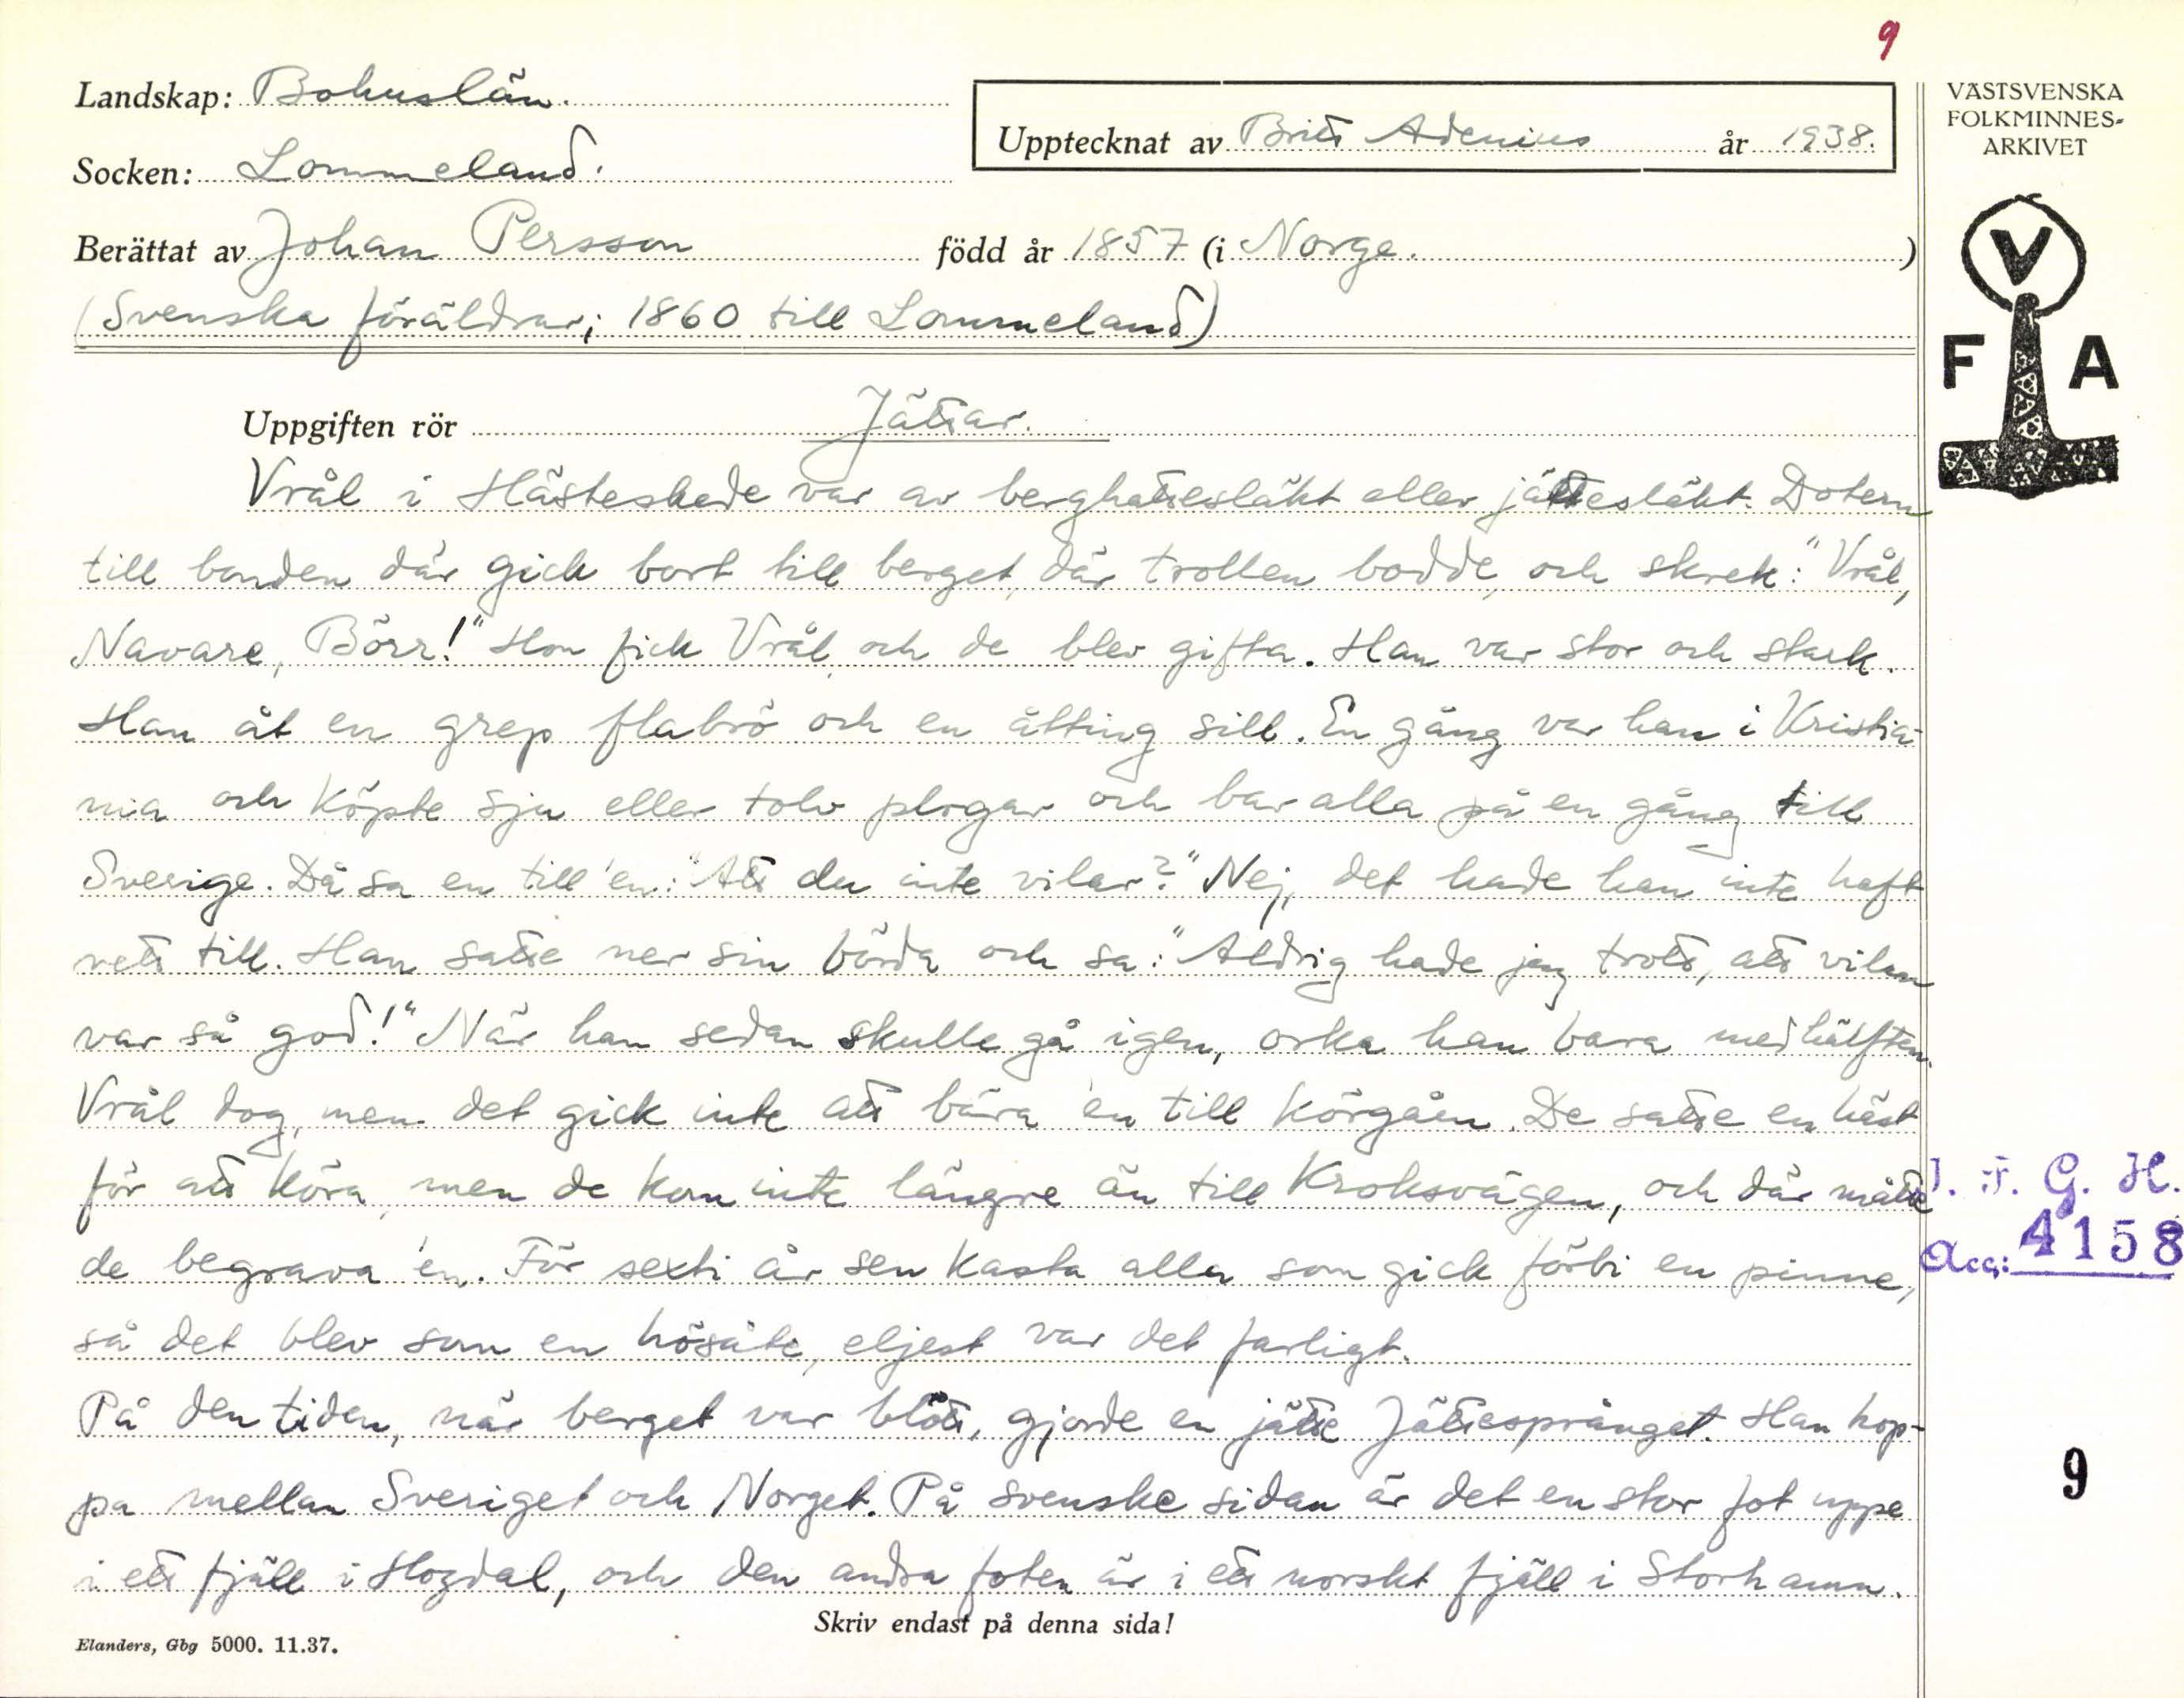 9
Landskap: Bohuslän.
Upptecknat av Britt Adenius år 1938.
Socken: Lommeland.
Berättat av Johan Persson född år 1857 (i Norge. )
(Svenska föräldrar; 1860 till Lommeland)
VÄSTSVENSKA
FOLKMINNES-
ARKIVET
V
F A
Uppgiften rör Jättar.
Vrål i Hästeskede var av berghattesläkt eller jättesläkt. Dotern
till bonden där gick bort till berget, där trollen bodde, och skrek: "Vrål,
Navare, Börr!" Hon fick Vrål, och de blev gifta. Han var stor och stark.
Han åt en grep flabrö och en åtting sill. En gång var han i Kristia-
nia och köpte sju eller tolv plogar och bar alla på en gång till
Sverige. Då sa en till 'en: "Att du inte vilar?" Nej, det hade han inte haft
vett till. Han satte ner sin börda och sa: "Aldrig hade jag trott, att vilan
var så god!" När han sedan skulle gå igen, orka han bara med hälften.
Vrål dog, men det gick inte att bära 'en till körgåen. De satte en häst
för att köra, men de kom inte längre än till Kroksvägen, och där måtte
de begrava 'en. För sexti år sen kasta alla som gick förbi en pinne,
så det blev som en hösåte, eljest var det farligt.
På den tiden, när berget var blött, gjorde en jätte Jättesprånget. Han hop-
pa mellan Sveriget och Norget. På svenske sidan är det en stor fot uppe
i ett fjäll i Hogdal, och den andra foten är i ett norskt fjäll i Storhamn.
I. F. G. H.
Acc: 4158
9
Skriv endast på denna sida!
Elanders, Gbg 5000. 11.37.